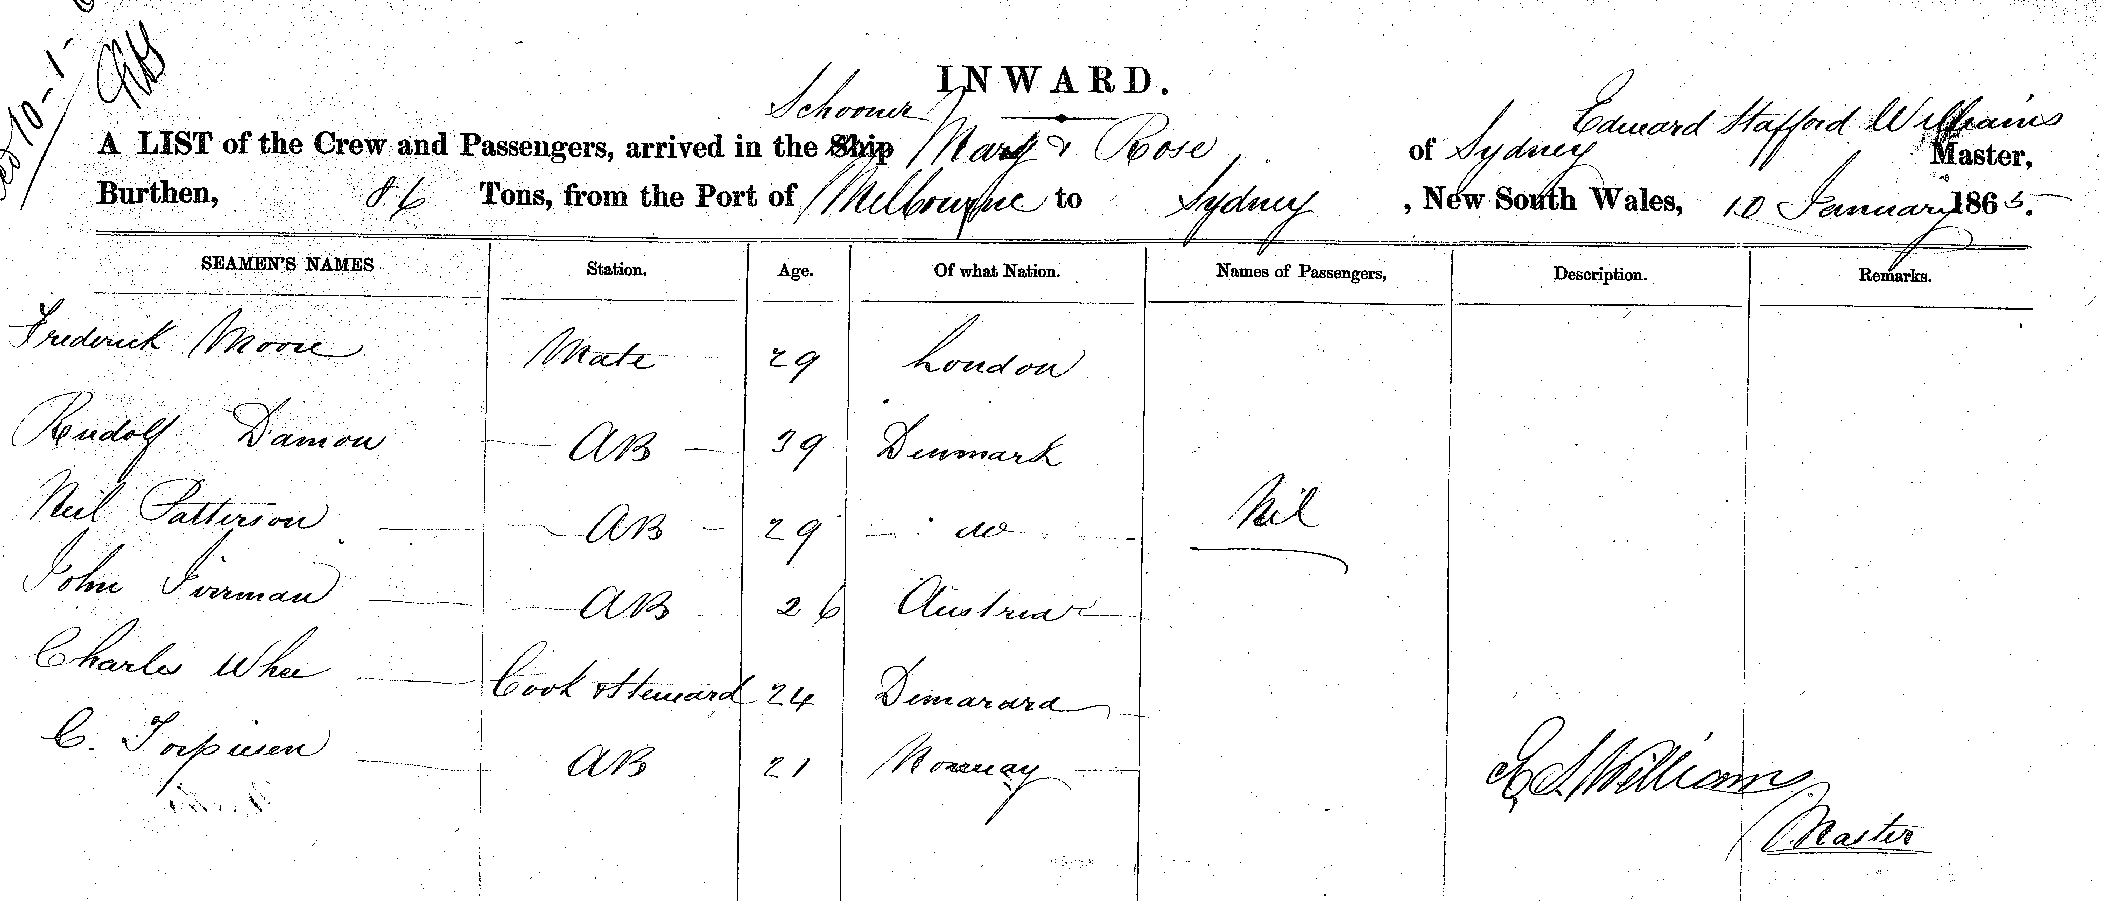 10-1
INWARD.
Schooner
Edward Stafford Williams
A LIST of the Crew and Passengers, arrived in the Ship Mary & Rose of Sydney Master,
Burthen, 86 Tons, from the Port of Melbourne to Sydney , New South Wales, 10 January 1865.
SEAMEN'S NAMES Station. Age. Of what Nation. Names of Passengers, Description. Remarks.
Frederick Moore Mate 29 London
Rudolf Damon AB 39 Denmark
Neil Patterson AB 29 do Nil
John AB 26 Austria
Charles Whee Cook & Steward 24 Dimarara
C. AB 21 Norway
E S Williams
Master